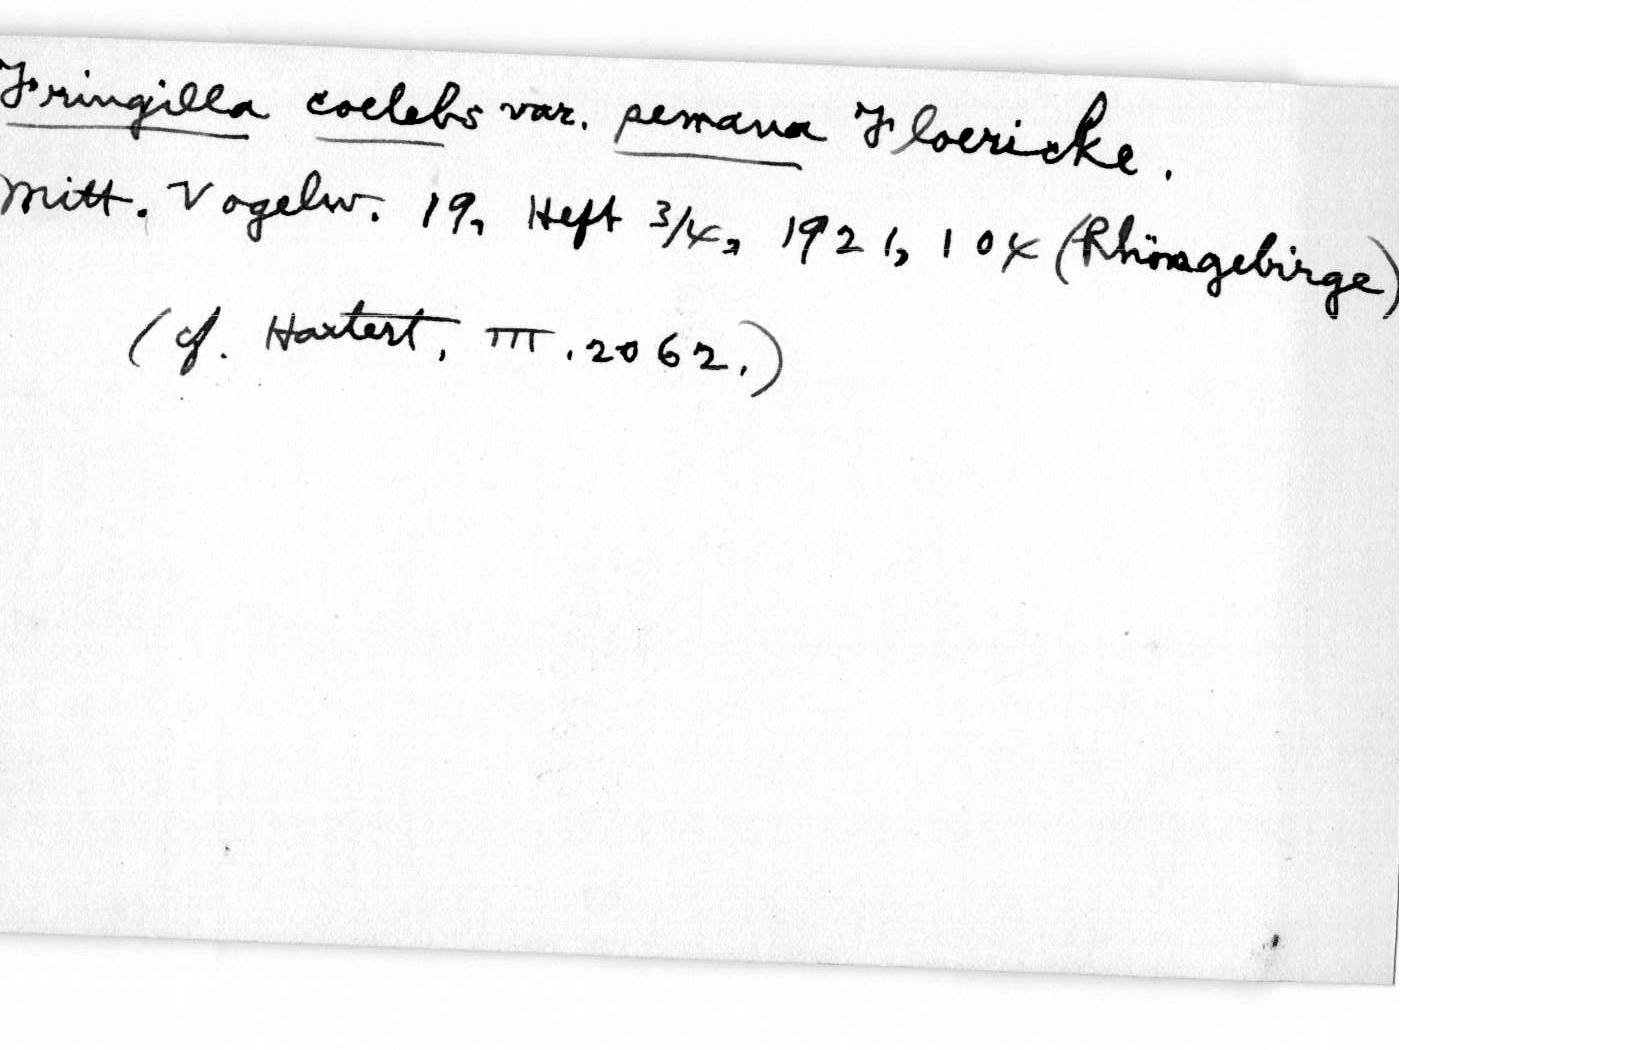 Fringilla coelebs var. semana Floericke.
Mitt. Vogelw. 19, Heft 3/4, 1921, 104 (Rhöngebirge)
(cf. Hartert, III. 2062.)